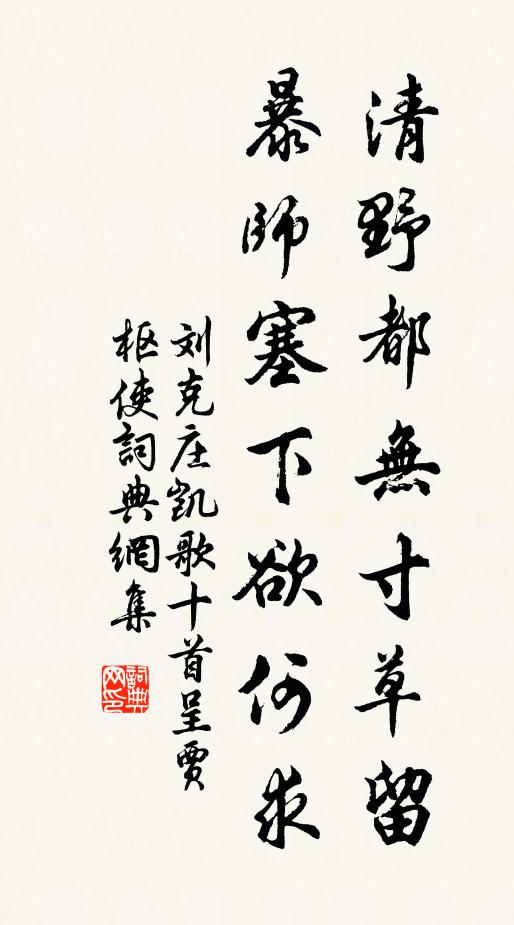 清野都無寸草留
暴師塞下欲何求
刘克庄凱歌十首呈賈
枢使詞典網集
詞典网印